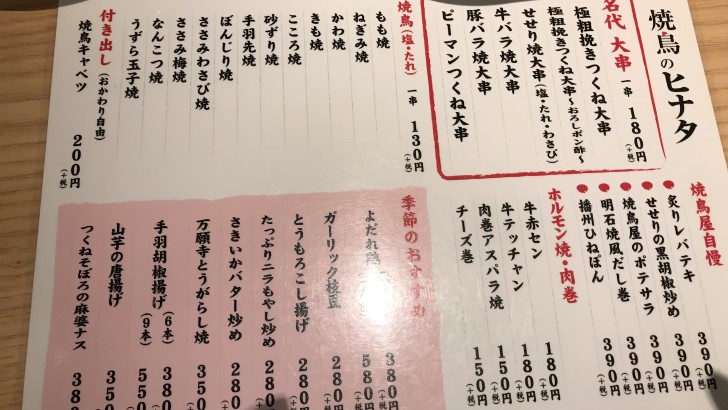 焼鳥のヒナタ
名代 大串 一串 180円(+税)
極粗挽きつくね大串
極粗挽きつくね大串～おろしポン酢～
せせり焼大串(塩・たれ・わさび)
牛バラ焼大串
豚バラ焼大串
ピーマンつくね大串
焼鳥(塩・たれ) 一串 130円(+税)
もも焼
ねぎみ焼
かわ焼
きも焼
こころ焼
砂ずり焼
手羽先焼
ぼんじり焼
ささみわさび焼
ささみ梅焼
なんこつ焼
うずら玉子焼
付き出し(おかわり自由)
焼鳥キャベツ 200円(+税)
焼鳥屋自慢
炙りレバテキ 390円(+税)
せせりの黒胡椒炒め 390円(+税)
焼鳥屋のポテサラ 390円(+税)
明石焼風だし巻 390円(+税)
播州ひねぽん 390円(+税)
ホルモン焼・肉巻
牛赤セン 180円(+税)
牛テッチャン 180円(+税)
肉巻アスパラ焼 150円(+税)
チーズ巻 150円(+税)
季節のおすすめ
よだれ鶏 380円
ガーリック枝豆 580円
とうもろこし揚げ 280円
たっぷりニラもやし炒め 280
さきいかバター炒め 280
万願寺とうがらし焼 350
手羽胡椒揚げ(6本) 380
(9本) 550
山芋の唐揚げ 350
つくねそぼろの麻婆ナス 380